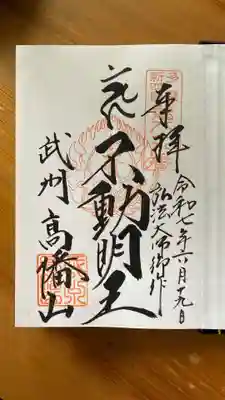 奉拝
令和七年六月十九日
弘法大師御作
不動明王
武州 高幡山